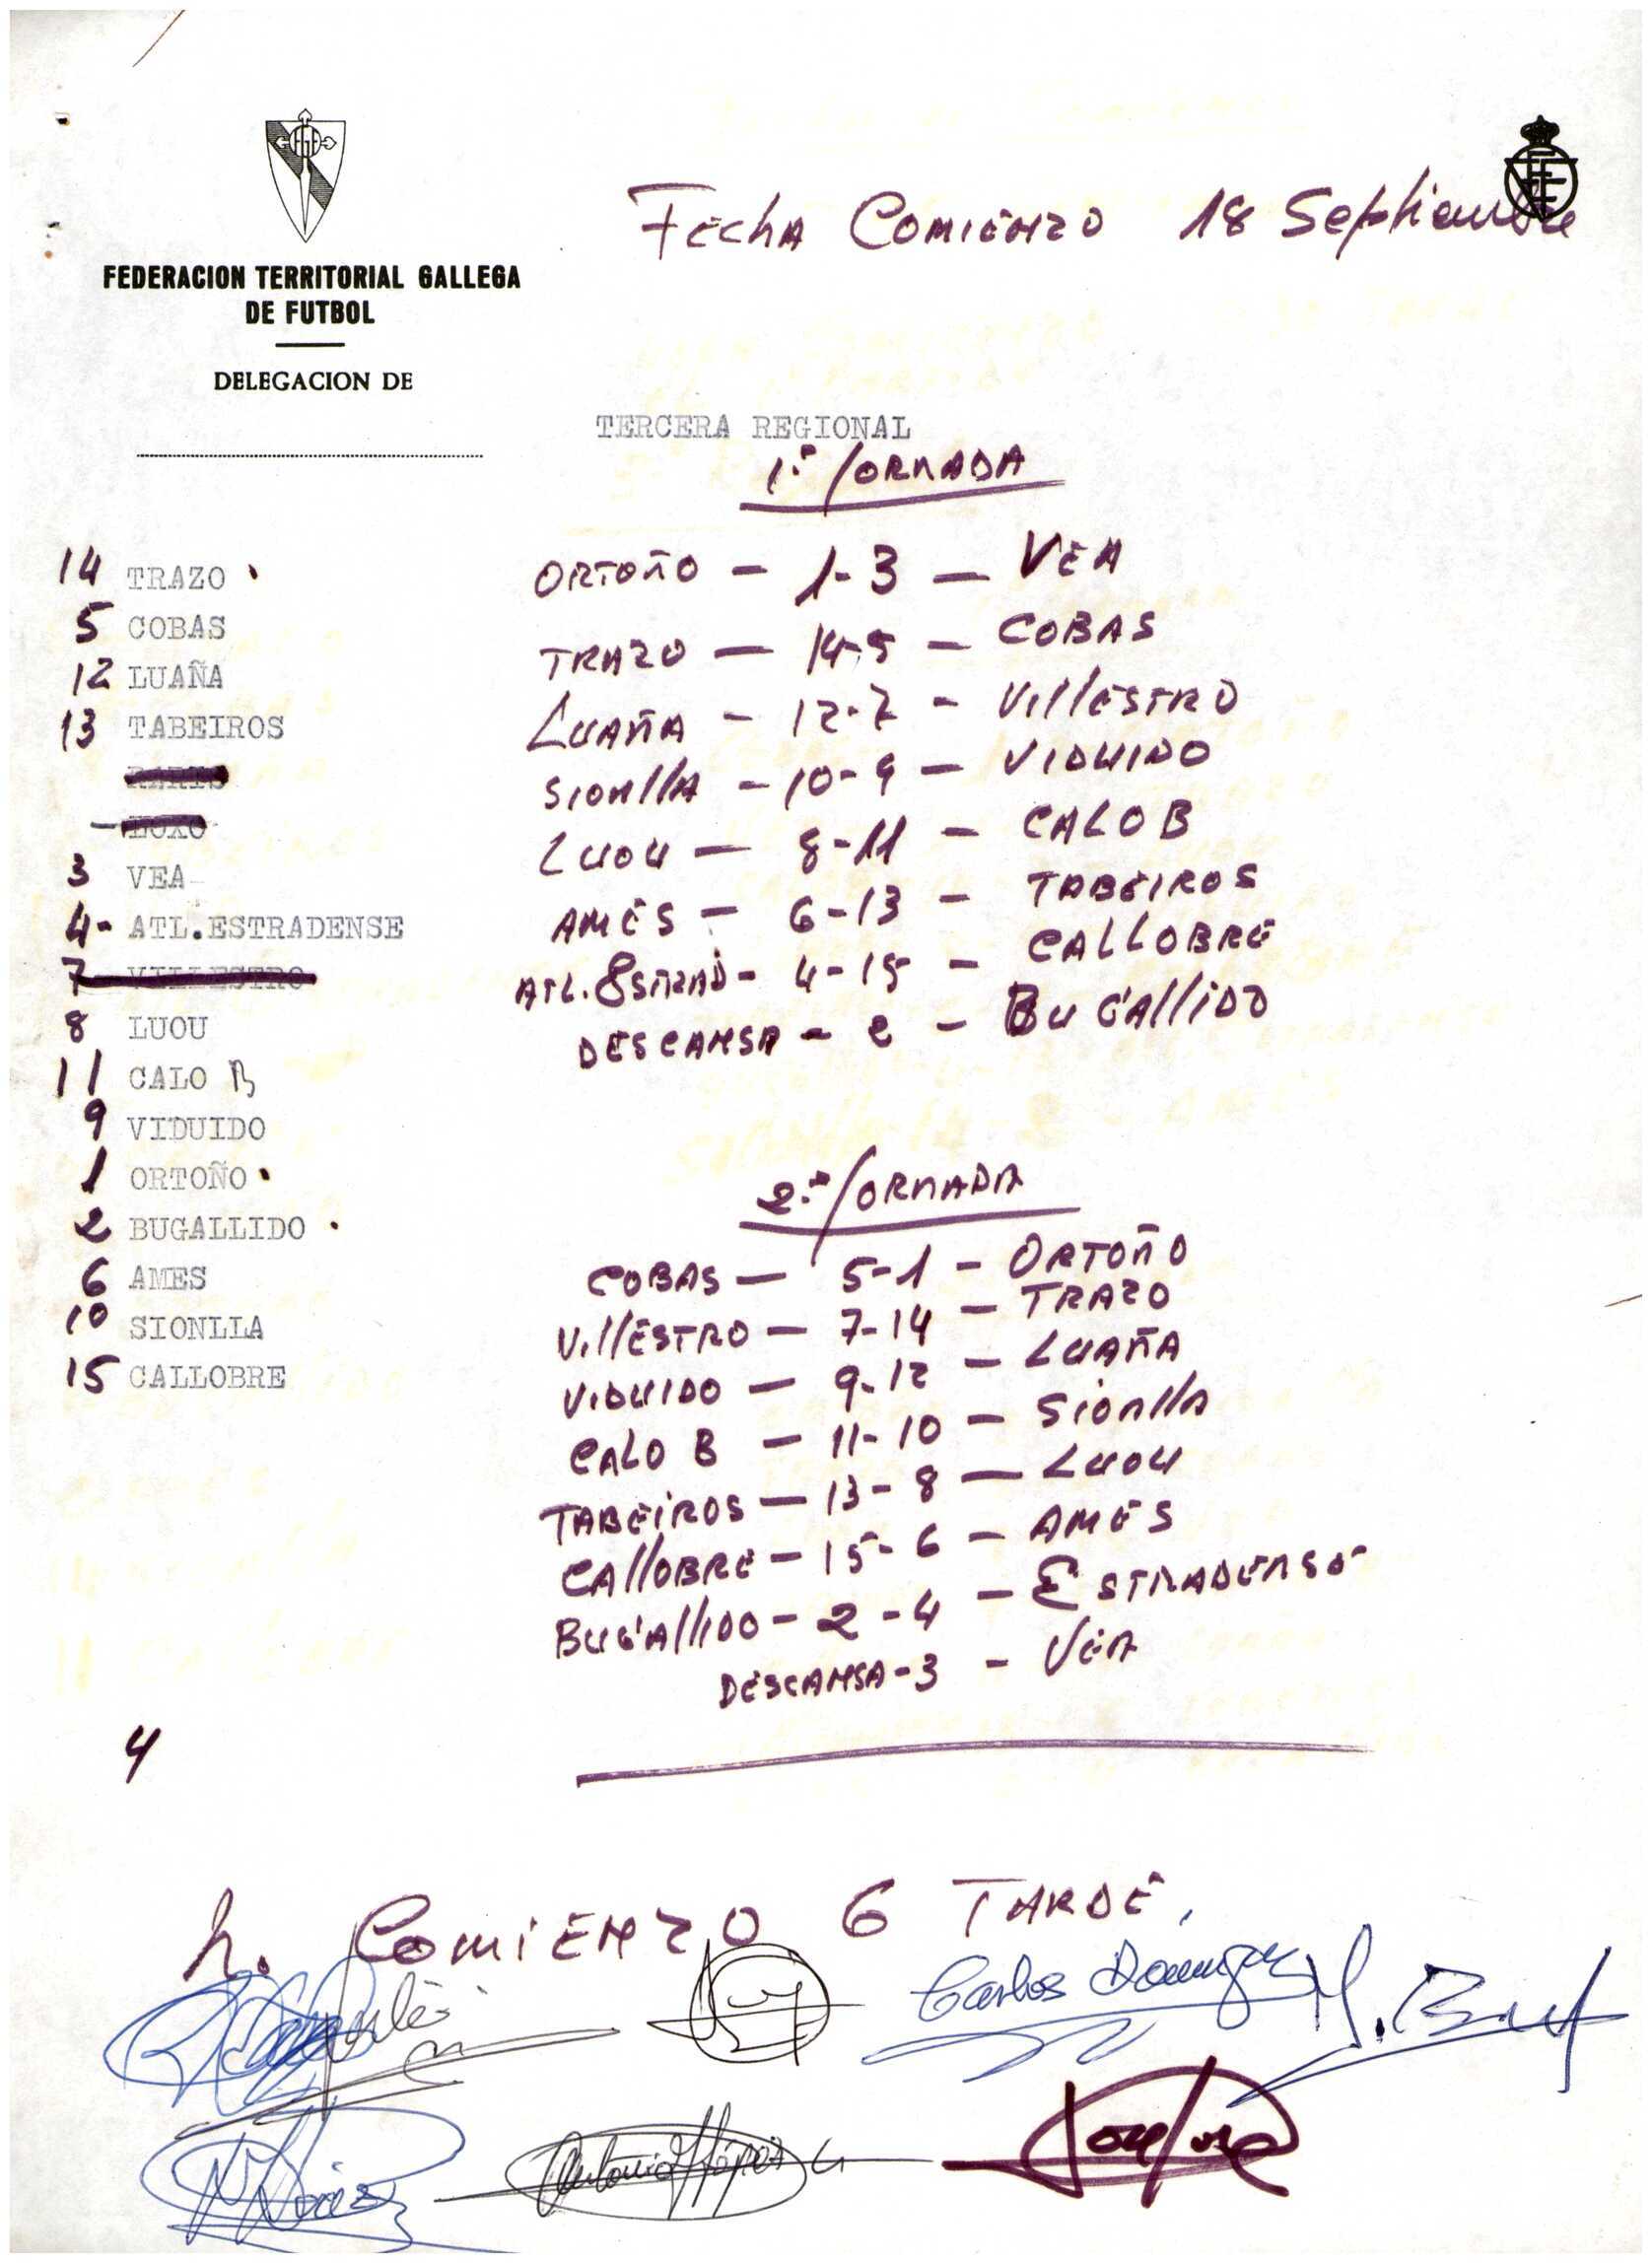 Fecha Comienzo 18 Septiembre
FEDERACION TERRITORIAL GALLEGA
DE FUTBOL
DELEGACION DE
TERCERA REGIONAL
1.ª JORNADA
14 TRAZO
5 COBAS
12 LUAÑA
13 TABEIROS
3 VEA
4- ATL.ESTRADENSE
7 VILLESTRO
8 LUOU
11 CALO B
9 VIDUIDO
1 ORTOÑO
2 BUGALLIDO
6 AMES
10 SIONLLA
15 CALLOBRE
ORTOÑO - 1-3 - VEA
TRAZO - 14-5 - COBAS
LUAÑA - 12-7 - VillESTRO
SIONllA - 10-9 - VIDUIDO
LUOU - 8-11 - CALO B
AMES - 6-13 - TABEIROS
ATL. ESTRAD - 4-15 - CALLOBRE
DESCANSA - 2 - BUGAlliDO
2.ª JORNADA
COBAS - 5-1 - ORTOÑO
VillESTRO - 7-14 - TRAZO
VIDUIDO - 9-12 - LUAÑA
CALO B - 11-10 - SiONllA
TABEiROS - 13-8 - LUOU
CAllOBRE - 15-6 - AMES
BUGAlliDO - 2-4 - ESTRADENSE
DESCANSA - 3 - VEA
4
h. COMiENZO 6 TARDE,
Carlos Domínguez
Antonio López